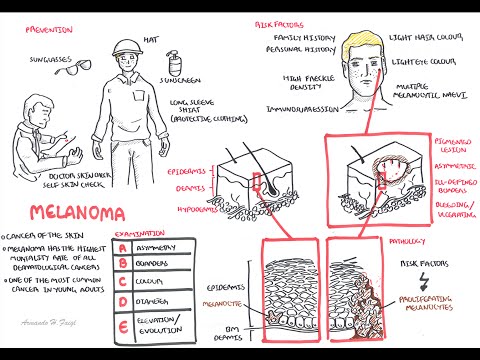 PREVENTION
HAT
SUNGLASSES
SUNSCREEN
LONG SLEEVE
SHIRT
(PROTECTIVE CLOTHING)
DOCTOR SKIN CHECK
SELF SKIN CHECK
RISK FACTORS
FAMILY HISTORY
PERSONAL HISTORY
LIGHT HAIR COLOUR
LIGHT EYE COLOUR
HIGH FRECKLE
DENSITY
MULTIPLE
MELANOCYTIC NAEVI
IMMUNOSUPRESSION
EPIDERMIS
DERMIS
HYPODERMIS
PIGMENTED
LESION
ASYMMETRIC
ILL-DEFINED
BORDERS
BLEEDING/
ULCERATING
MELANOMA
CANCER OF THE SKIN
MELANOMA HAS THE HIGHEST
MORTALITY RATE OF ALL
DERMATOLOGICAL CANCERS
ONE OF THE MOST COMMON
CANCER IN YOUNG ADULTS
Armando H. Faigl
EXAMINATION
A ASYMMETRY
B BOARDERS
C COLOUR
D DIAMETER
E ELEVATION/
EVOLUTION
PATHOLOGY
EPIDERMIS
MELANOCYTE
BM
DERMIS
RISK FACTORS
PROLIFERATING
MELANOCYTES